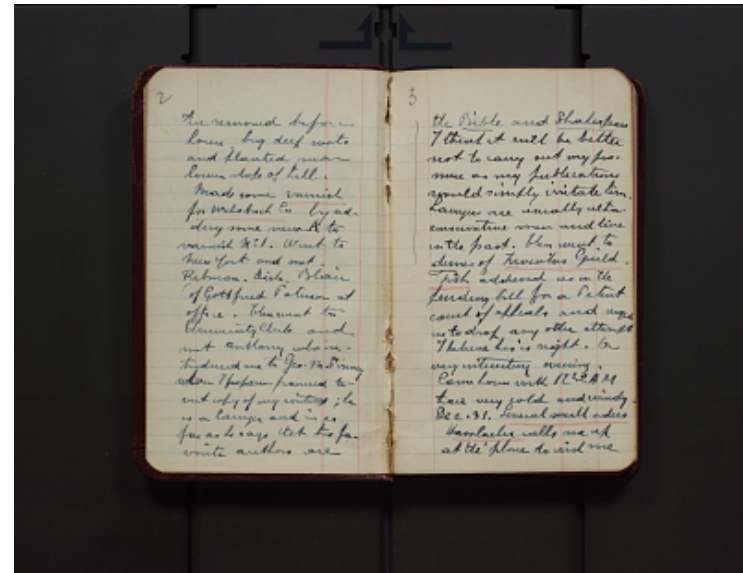 2
removed before
lower, big deep roots
and planted near
lower slope of hill.
Made some varnish
for Co by ad-
ding some to
varnish No 1. Went to
New York and met
Robinson. Dick. Blair
of Gottfried at
office. Then went to
Community Club and
met Anthony who in-
troduced me to Geo.
whom I promised to
copy of my ; he
is a lawyer and is as
far as he says that his fa-
vorite authors are
3
the Bible and Shakespeare
I think it will be better
not to carry out my pro-
mise as my publications
would simply irritate him.
Lawyers are usually ultra
conservative men and live
in the past. Then went to
dinner of Inventors Guild.
Fish addressed us on the
pending bill for a Patent
court of appeals and urged
us to drop any other attempt
I believe he is right. On
very interesting evening.
Came home with 12 AM
train very cold and windy.
Dec. 31. Several
Hasslacher calls me up
at the phone to wish me